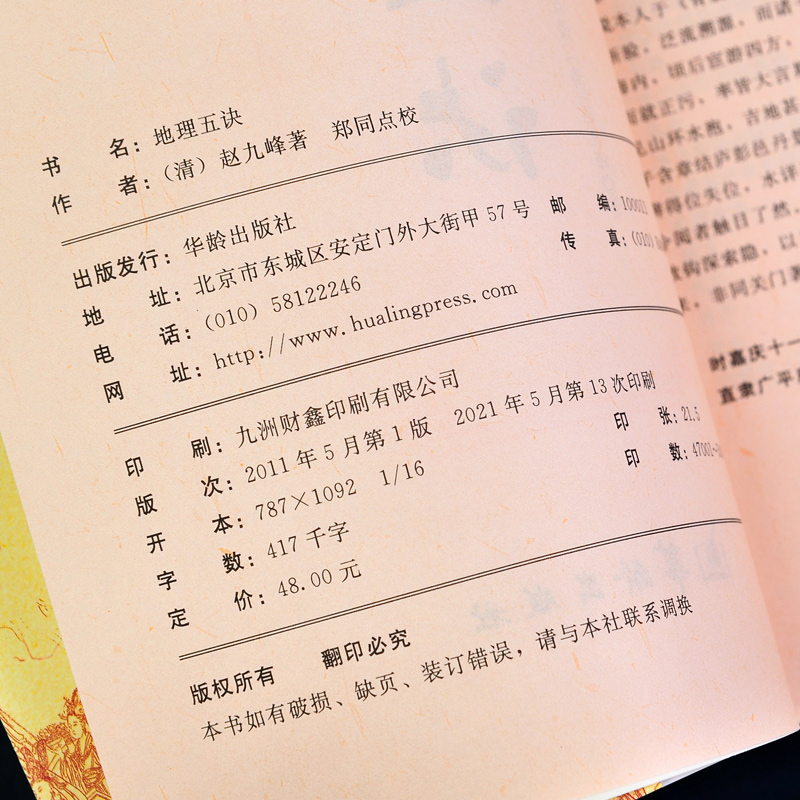 书 名：地理五诀
作 者：（清）赵九峰著 郑同点校
出版发行：华龄出版社
地 址：北京市东城区安定门外大街甲 57 号 邮 编：
电 话：（010）58122246 传 真：（010）
网 址：http://www.hualingpress.com
印 刷：九洲财鑫印刷有限公司
版 次：2011 年 5 月第 1 版 2021 年 5 月第 13 次印刷
开 本：787×1092 1/16 印 张：21.5
字 数：417 千字 印 数：
定 价：48.00 元
版权所有 翻印必究
本书如有破损、缺页、装订错误，请与本社联系调换
验，泛流溯源，而诸
内，顷后宦游四方，
就正污，率皆大言
山环水抱，吉地甚
子含章结庐彭邑丹
得位失位，水详
阅者触目了然，
钩探索隐，以
非同关门著
时嘉庆十一
直隶广平